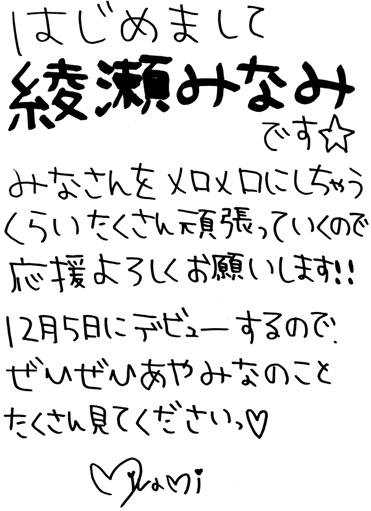 はじめまして
綾瀬みなみ
です☆
みなさんをメロメロにしちゃう
くらいたくさん頑張っていくので
応援よろしくお願いします!!
12月5日にデビューするので、
ぜひぜひあやみなのこと
たくさん見てくださいっ♡
Minami